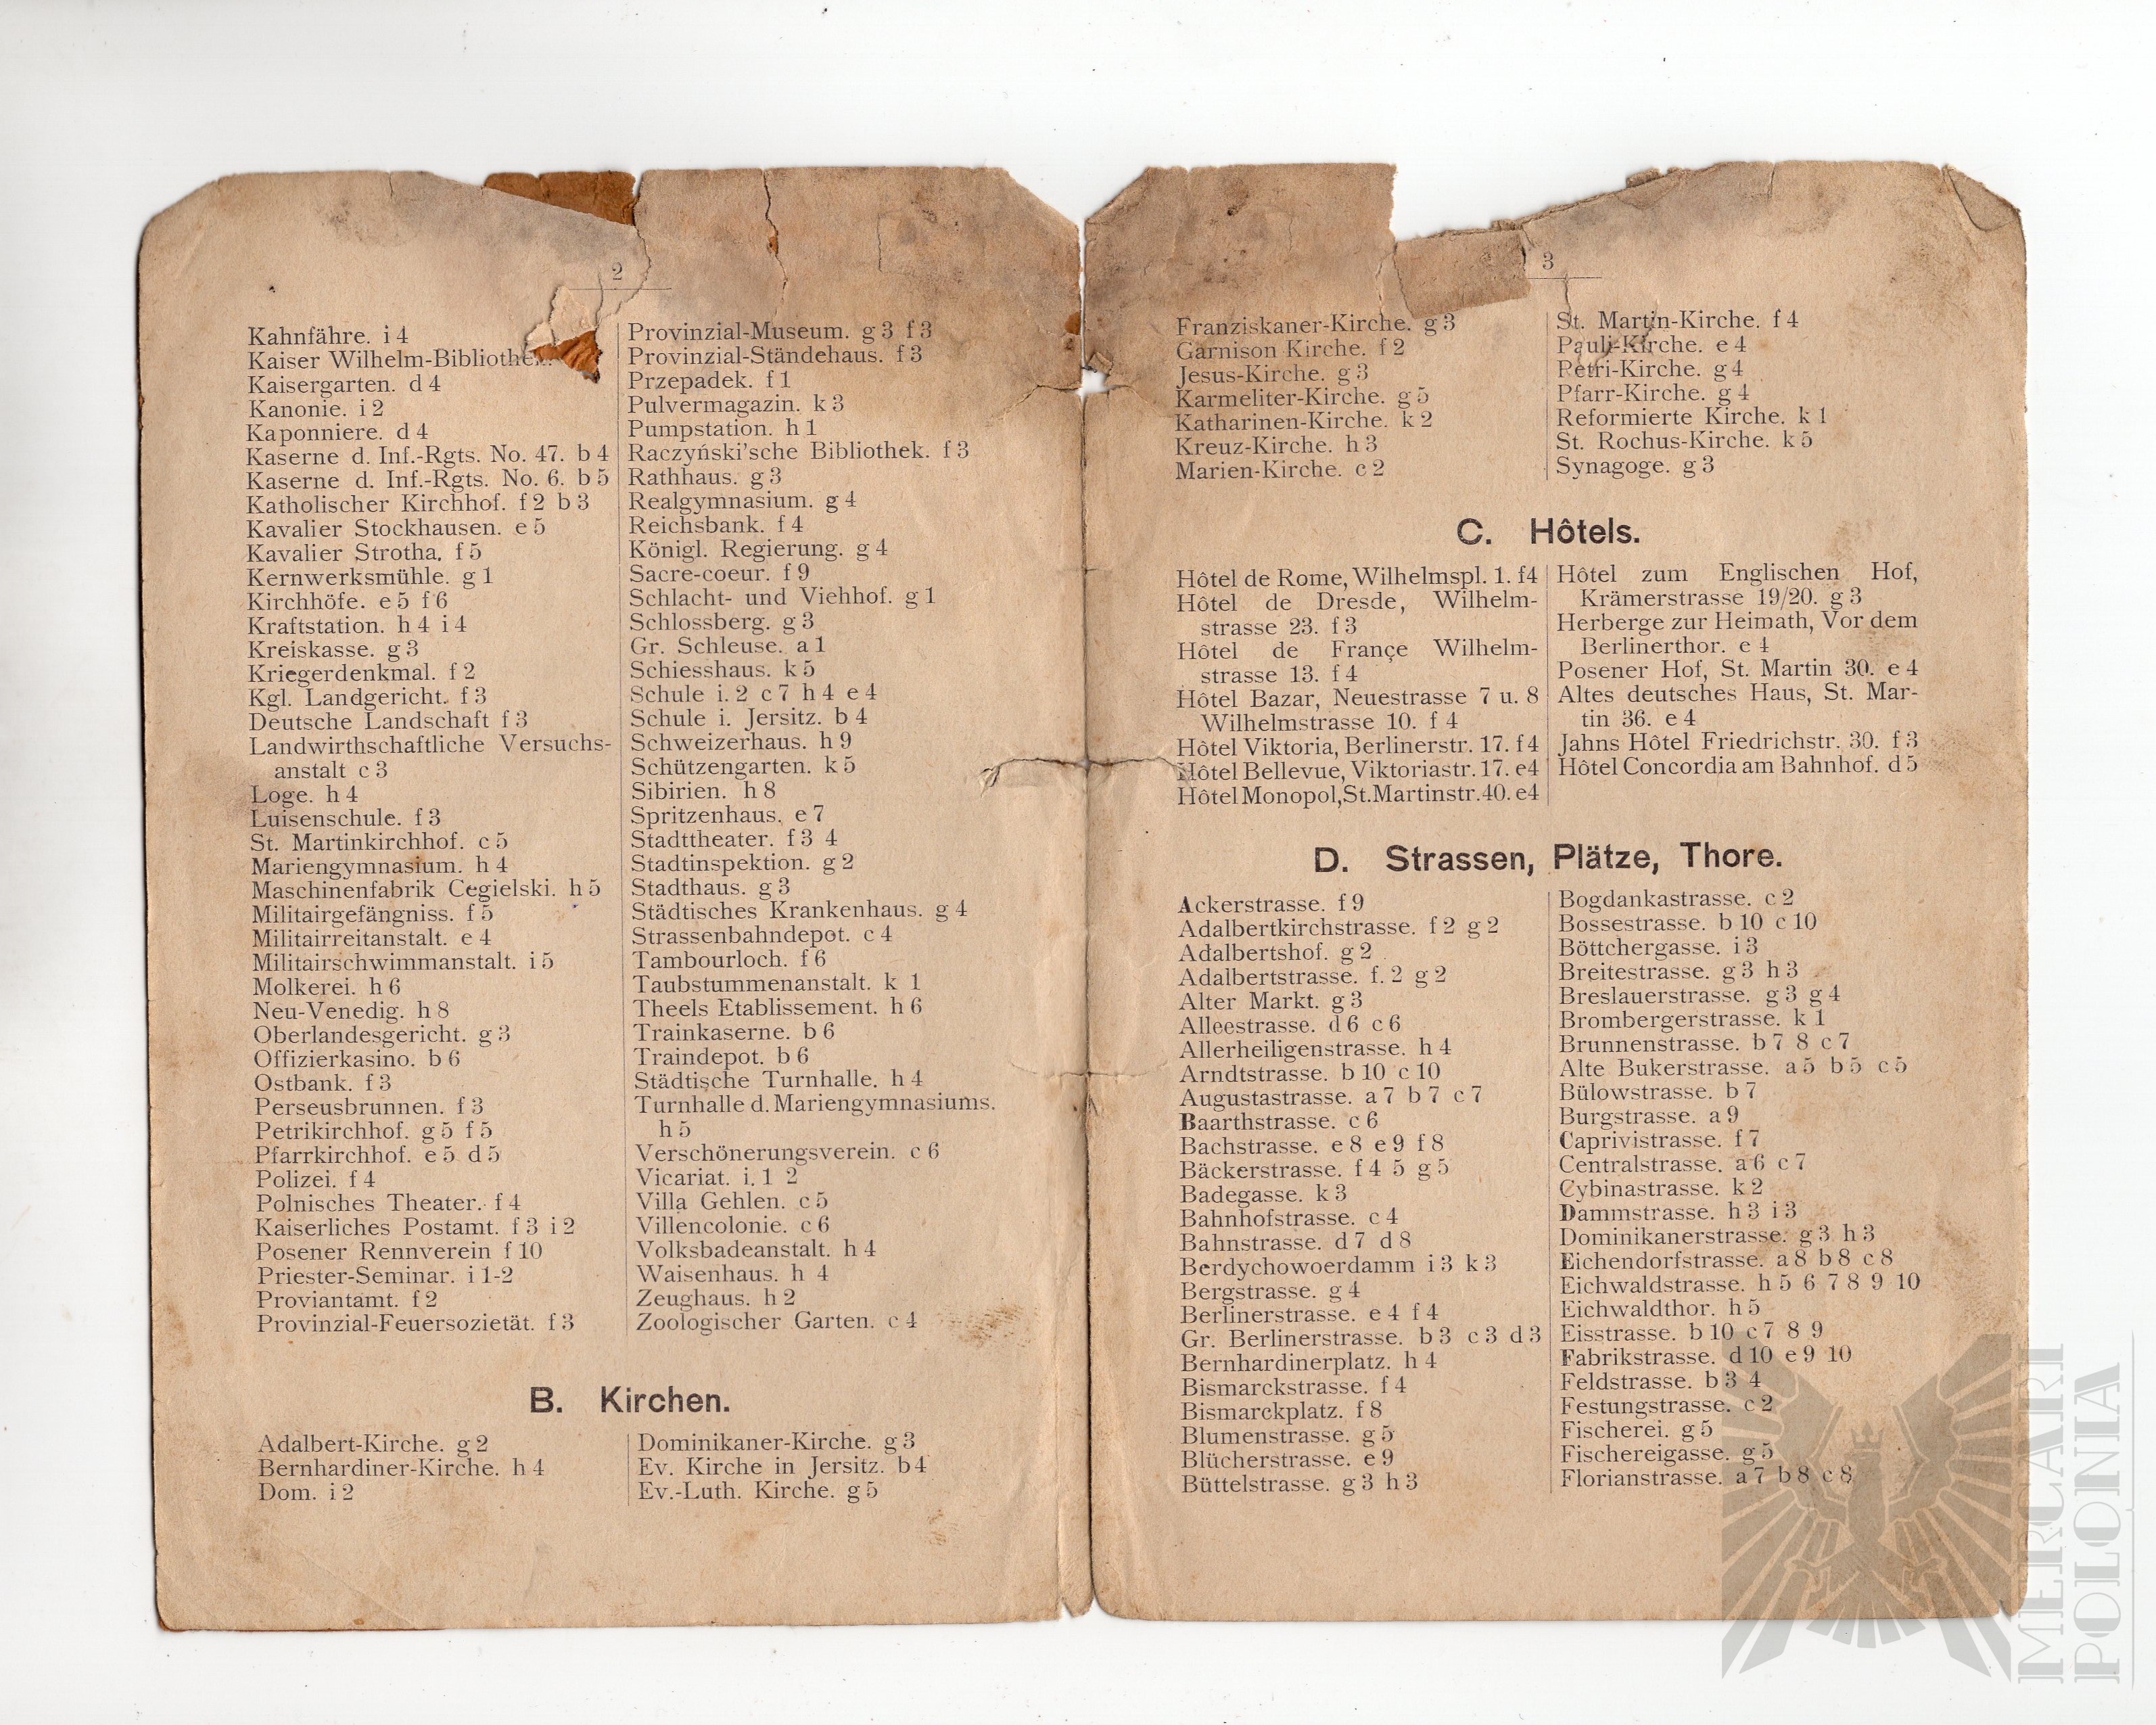 2
Kahnfähre. i 4
Kaiser Wilhelm-Bibliothek.
Kaisergarten. d 4
Kanonie. i 2
Kaponniere. d 4
Kaserne d. Inf.-Rgts. No. 47. b 4
Kaserne d. Inf.-Rgts. No. 6. b 5
Katholischer Kirchhof. f 2 b 3
Kavalier Stockhausen. e 5
Kavalier Strotha. f 5
Kernwerksmühle. g 1
Kirchhöfe. e 5 f 6
Kraftstation. h 4 i 4
Kreiskasse. g 3
Kriegerdenkmal. f 2
Kgl. Landgericht. f 3
Deutsche Landschaft f 3
Landwirthschaftliche Versuchs-
anstalt c 3
Loge. h 4
Luisenschule. f 3
St. Martinkirchhof. c 5
Mariengymnasium. h 4
Maschinenfabrik Cegielski. h 5
Militairgefängniss. f 5
Militairreitanstalt. e 4
Militairschwimmanstalt. i 5
Molkerei. h 6
Neu-Venedig. h 8
Oberlandesgericht. g 3
Offizierkasino. b 6
Ostbank. f 3
Perseusbrunnen. f 3
Petrikirchhof. g 5 f 5
Pfarrkirchhof. e 5 d 5
Polizei. f 4
Polnisches Theater. f 4
Kaiserliches Postamt. f 3 i 2
Posener Rennverein f 10
Priester-Seminar. i 1-2
Proviantamt. f 2
Provinzial-Feuersozietät. f 3
Provinzial-Museum. g 3 f 3
Provinzial-Ständehaus. f 3
Przepadek. f 1
Pulvermagazin. k 3
Pumpstation. h 1
Raczyński'sche Bibliothek. f 3
Rathhaus. g 3
Realgymnasium. g 4
Reichsbank. f 4
Königl. Regierung. g 4
Sacre-coeur. f 9
Schlacht- und Viehhof. g 1
Schlossberg. g 3
Gr. Schleuse. a 1
Schiesshaus. k 5
Schule i. 2 c 7 h 4 e 4
Schule i. Jersitz. b 4
Schweizerhaus. h 9
Schützengarten. k 5
Sibirien. h 8
Spritzenhaus. e 7
Stadttheater. f 3 4
Stadtinspektion. g 2
Stadthaus. g 3
Städtisches Krankenhaus. g 4
Strassenbahndepot. c 4
Tambourloch. f 6
Taubstummenanstalt. k 1
Theels Etablissement. h 6
Trainkaserne. b 6
Traindepot. b 6
Städtische Turnhalle. h 4
Turnhalle d. Mariengymnasiums.
h 5
Verschönerungsverein. c 6
Vicariat. i. 1 2
Villa Gehlen. c 5
Villencolonie. c 6
Volksbadeanstalt. h 4
Waisenhaus. h 4
Zeughaus. h 2
Zoologischer Garten. c 4
B. Kirchen.
Adalbert-Kirche. g 2
Bernhardiner-Kirche. h 4
Dom. i 2
Dominikaner-Kirche. g 3
Ev. Kirche in Jersitz. b 4
Ev.-Luth. Kirche. g 5
3
Franziskaner-Kirche. g 3
Garnison Kirche. f 2
Jesus-Kirche. g 3
Karmeliter-Kirche. g 5
Katharinen-Kirche. k 2
Kreuz-Kirche. h 3
Marien-Kirche. c 2
St. Martin-Kirche. f 4
Pauli-Kirche. e 4
Petri-Kirche. g 4
Pfarr-Kirche. g 4
Reformierte Kirche. k 1
St. Rochus-Kirche. k 5
Synagoge. g 3
C. Hôtels.
Hôtel de Rome, Wilhelmspl. 1. f 4
Hôtel de Dresde, Wilhelm-
strasse 23. f 3
Hôtel de Françe Wilhelm-
strasse 13. f 4
Hôtel Bazar, Neuestrasse 7 u. 8
Wilhelmstrasse 10. f 4
Hôtel Viktoria, Berlinerstr. 17. f 4
Hôtel Bellevue, Viktoriastr. 17. e 4
Hôtel Monopol, St. Martinstr. 40. e 4
Hôtel zum Englischen Hof,
Krämerstrasse 19/20. g 3
Herberge zur Heimath, Vor dem
Berlinerthor. e 4
Posener Hof, St. Martin 30. e 4
Altes deutsches Haus, St. Mar-
tin 36. e 4
Jahns Hôtel Friedrichstr. 30. f 3
Hôtel Concordia am Bahnhof. d 5
D. Strassen, Plätze, Thore.
Ackerstrasse. f 9
Adalbertkirchstrasse. f 2 g 2
Adalbertshof. g 2
Adalbertstrasse. f. 2 g 2
Alter Markt. g 3
Alleestrasse. d 6 c 6
Allerheiligenstrasse. h 4
Arndtstrasse. b 10 c 10
Augustastrasse. a 7 b 7 c 7
Baarthstrasse. c 6
Bachstrasse. e 8 e 9 f 8
Bäckerstrasse. f 4 5 g 5
Badegasse. k 3
Bahnhofstrasse. c 4
Bahnstrasse. d 7 d 8
Berdychowoerdamm i 3 k 3
Bergstrasse. g 4
Berlinerstrasse. e 4 f 4
Gr. Berlinerstrasse. b 3 c 3 d 3
Bernhardinerplatz. h 4
Bismarckstrasse. f 4
Bismarckplatz. f 8
Blumenstrasse. g 5
Blücherstrasse. e 9
Büttelstrasse. g 3 h 3
Bogdankastrasse. c 2
Bossestrasse. b 10 c 10
Böttchergasse. i 3
Breitestrasse. g 3 h 3
Breslauerstrasse. g 3 g 4
Brombergerstrasse. k 1
Brunnenstrasse. b 7 8 c 7
Alte Bukerstrasse. a 5 b 5 c 5
Bülowstrasse. b 7
Burgstrasse. a 9
Caprivistrasse. f 7
Centralstrasse. a 6 c 7
Cybinastrasse. k 2
Dammstrasse. h 3 i 3
Dominikanerstrasse. g 3 h 3
Eichendorfstrasse. a 8 b 8 c 8
Eichwaldstrasse. h 5 6 7 8 9 10
Eichwaldthor. h 5
Eisstrasse. b 10 c 7 8 9
Fabrikstrasse. d 10 e 9 10
Feldstrasse. b 3 4
Festungstrasse. c 2
Fischerei. g 5
Fischereigasse. g 5
Florianstrasse. a 7 b 8 c 8
MERCARI
POLONIA